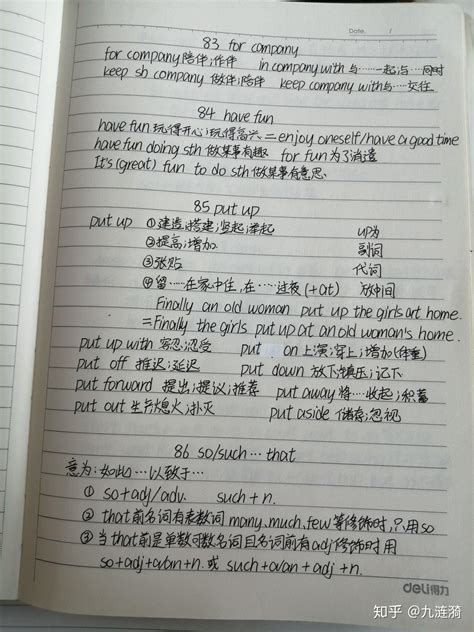 Date. /
83 for company
for company 陪伴;作伴 in company with 与……一起;与…同时
keep sb company 做伴;陪伴 keep company with 与……交往
84 have fun
have fun 玩得开心;玩得高兴 = enjoy oneself/have a good time
have fun doing sth 做某事有趣 for fun 为了消遣
It's (great) fun to do sth 做某事有意思
85 put up
put up ①建造;搭建;竖起;举起 up为
②提高;增加 副词
③张贴 代词
④留……在家中住,在……过夜(+at) 放中间
Finally an old woman put up the girls at home.
=Finally the girls put up at an old woman's home.
put up with 容忍;忍受 put on 上演;穿上;增加(体重)
put off 推迟;延迟 put down 放下;镇压;记下
put forward 提出;提议;推荐 put away 将…收起;积蓄
put out 生产;熄火;扑灭 put aside 储存;忽视
86 so/such…that
意为:如此…以致于…
① so+adj/adv. such+n.
② that前名词有表数词 many, much, few等修饰时,只用so
③ 当that前是单数可数名词且名词前有adj修饰时用
so+adj+a/an+n. 或 such+a/an+adj+n.
deli得力
知乎 @九涟漪